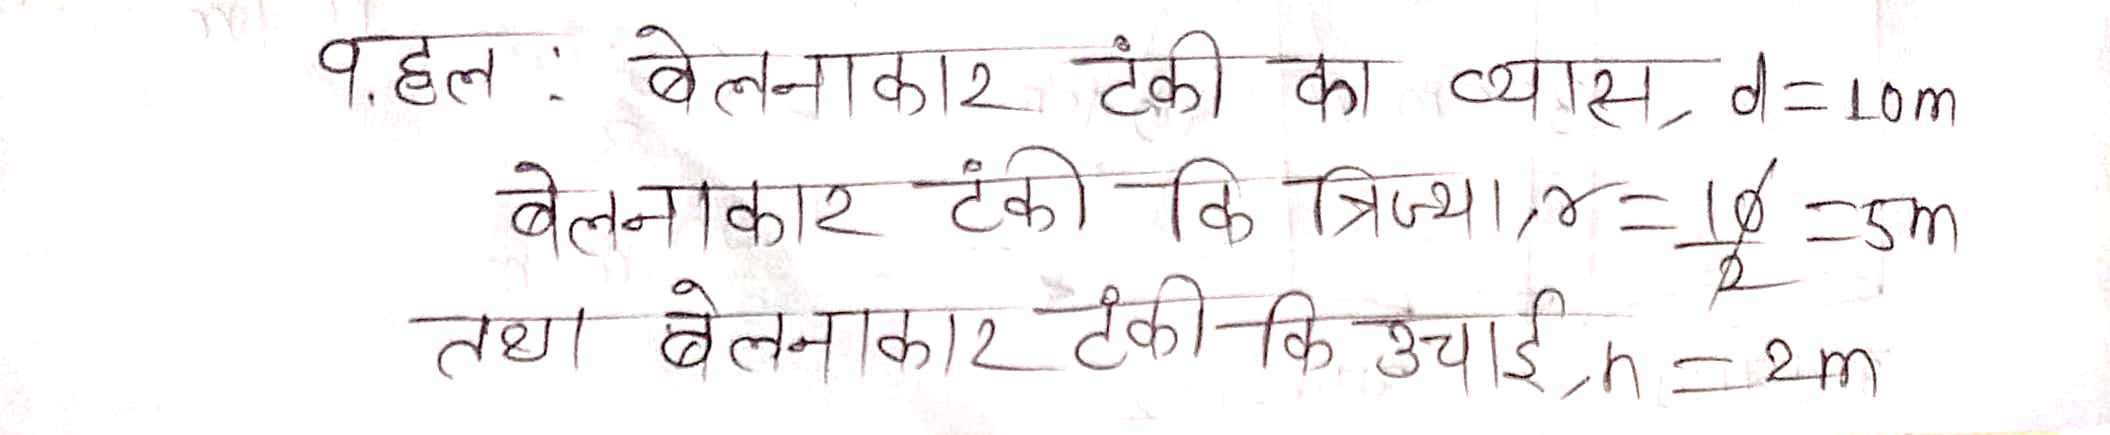 १. हल : बेलनाकार टंकी का व्यास, d = 10m
बेलनाकार टंकी कि त्रिज्या, r = 10/2 = 5m
तथा बेलनाकार टंकी कि उचाई, h = 2m